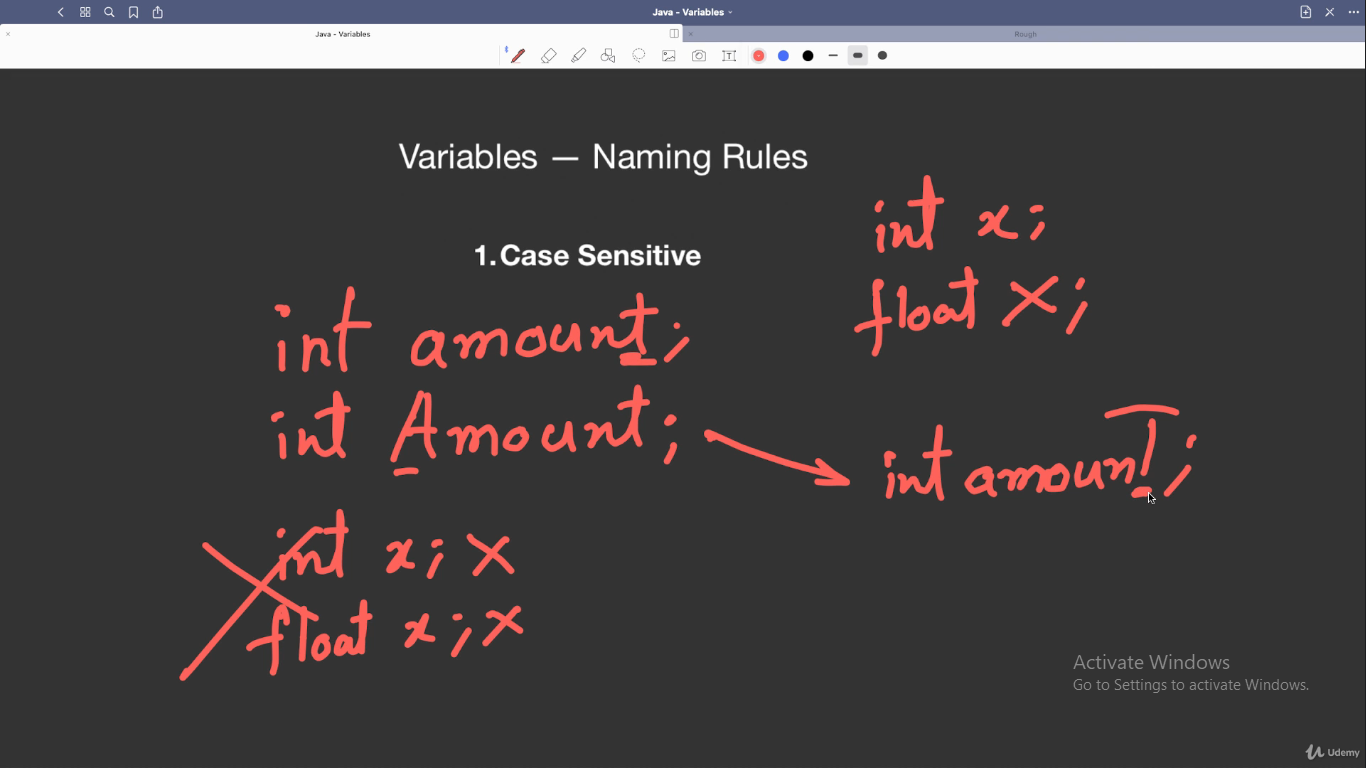 Java - Variables
Java - Variables
Rough
T
Variables — Naming Rules
1. Case Sensitive
int amount;
int Amount;
int x; X
float x; X
int x;
float X;
int amounT;
Activate Windows
Go to Settings to activate Windows.
Udemy